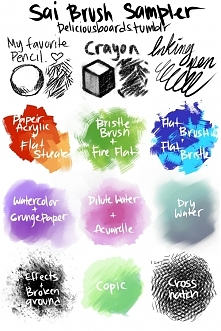 Sai Brush Sampler
Deliciousboards.tumblr
My favorite
Pencil.
Crayon
Inking
pen
Paper
Acrylic
+
Flat
Steak
Bristle
Brush
+
Fire Flat
Flat
Brush
+
Flat
Bristle
Watercolor
+
Grunge Paper
Dilute Water
+
Acuarelle
Dry
Water
Effects
+
Broken
ground
Copic
Cross
hatch